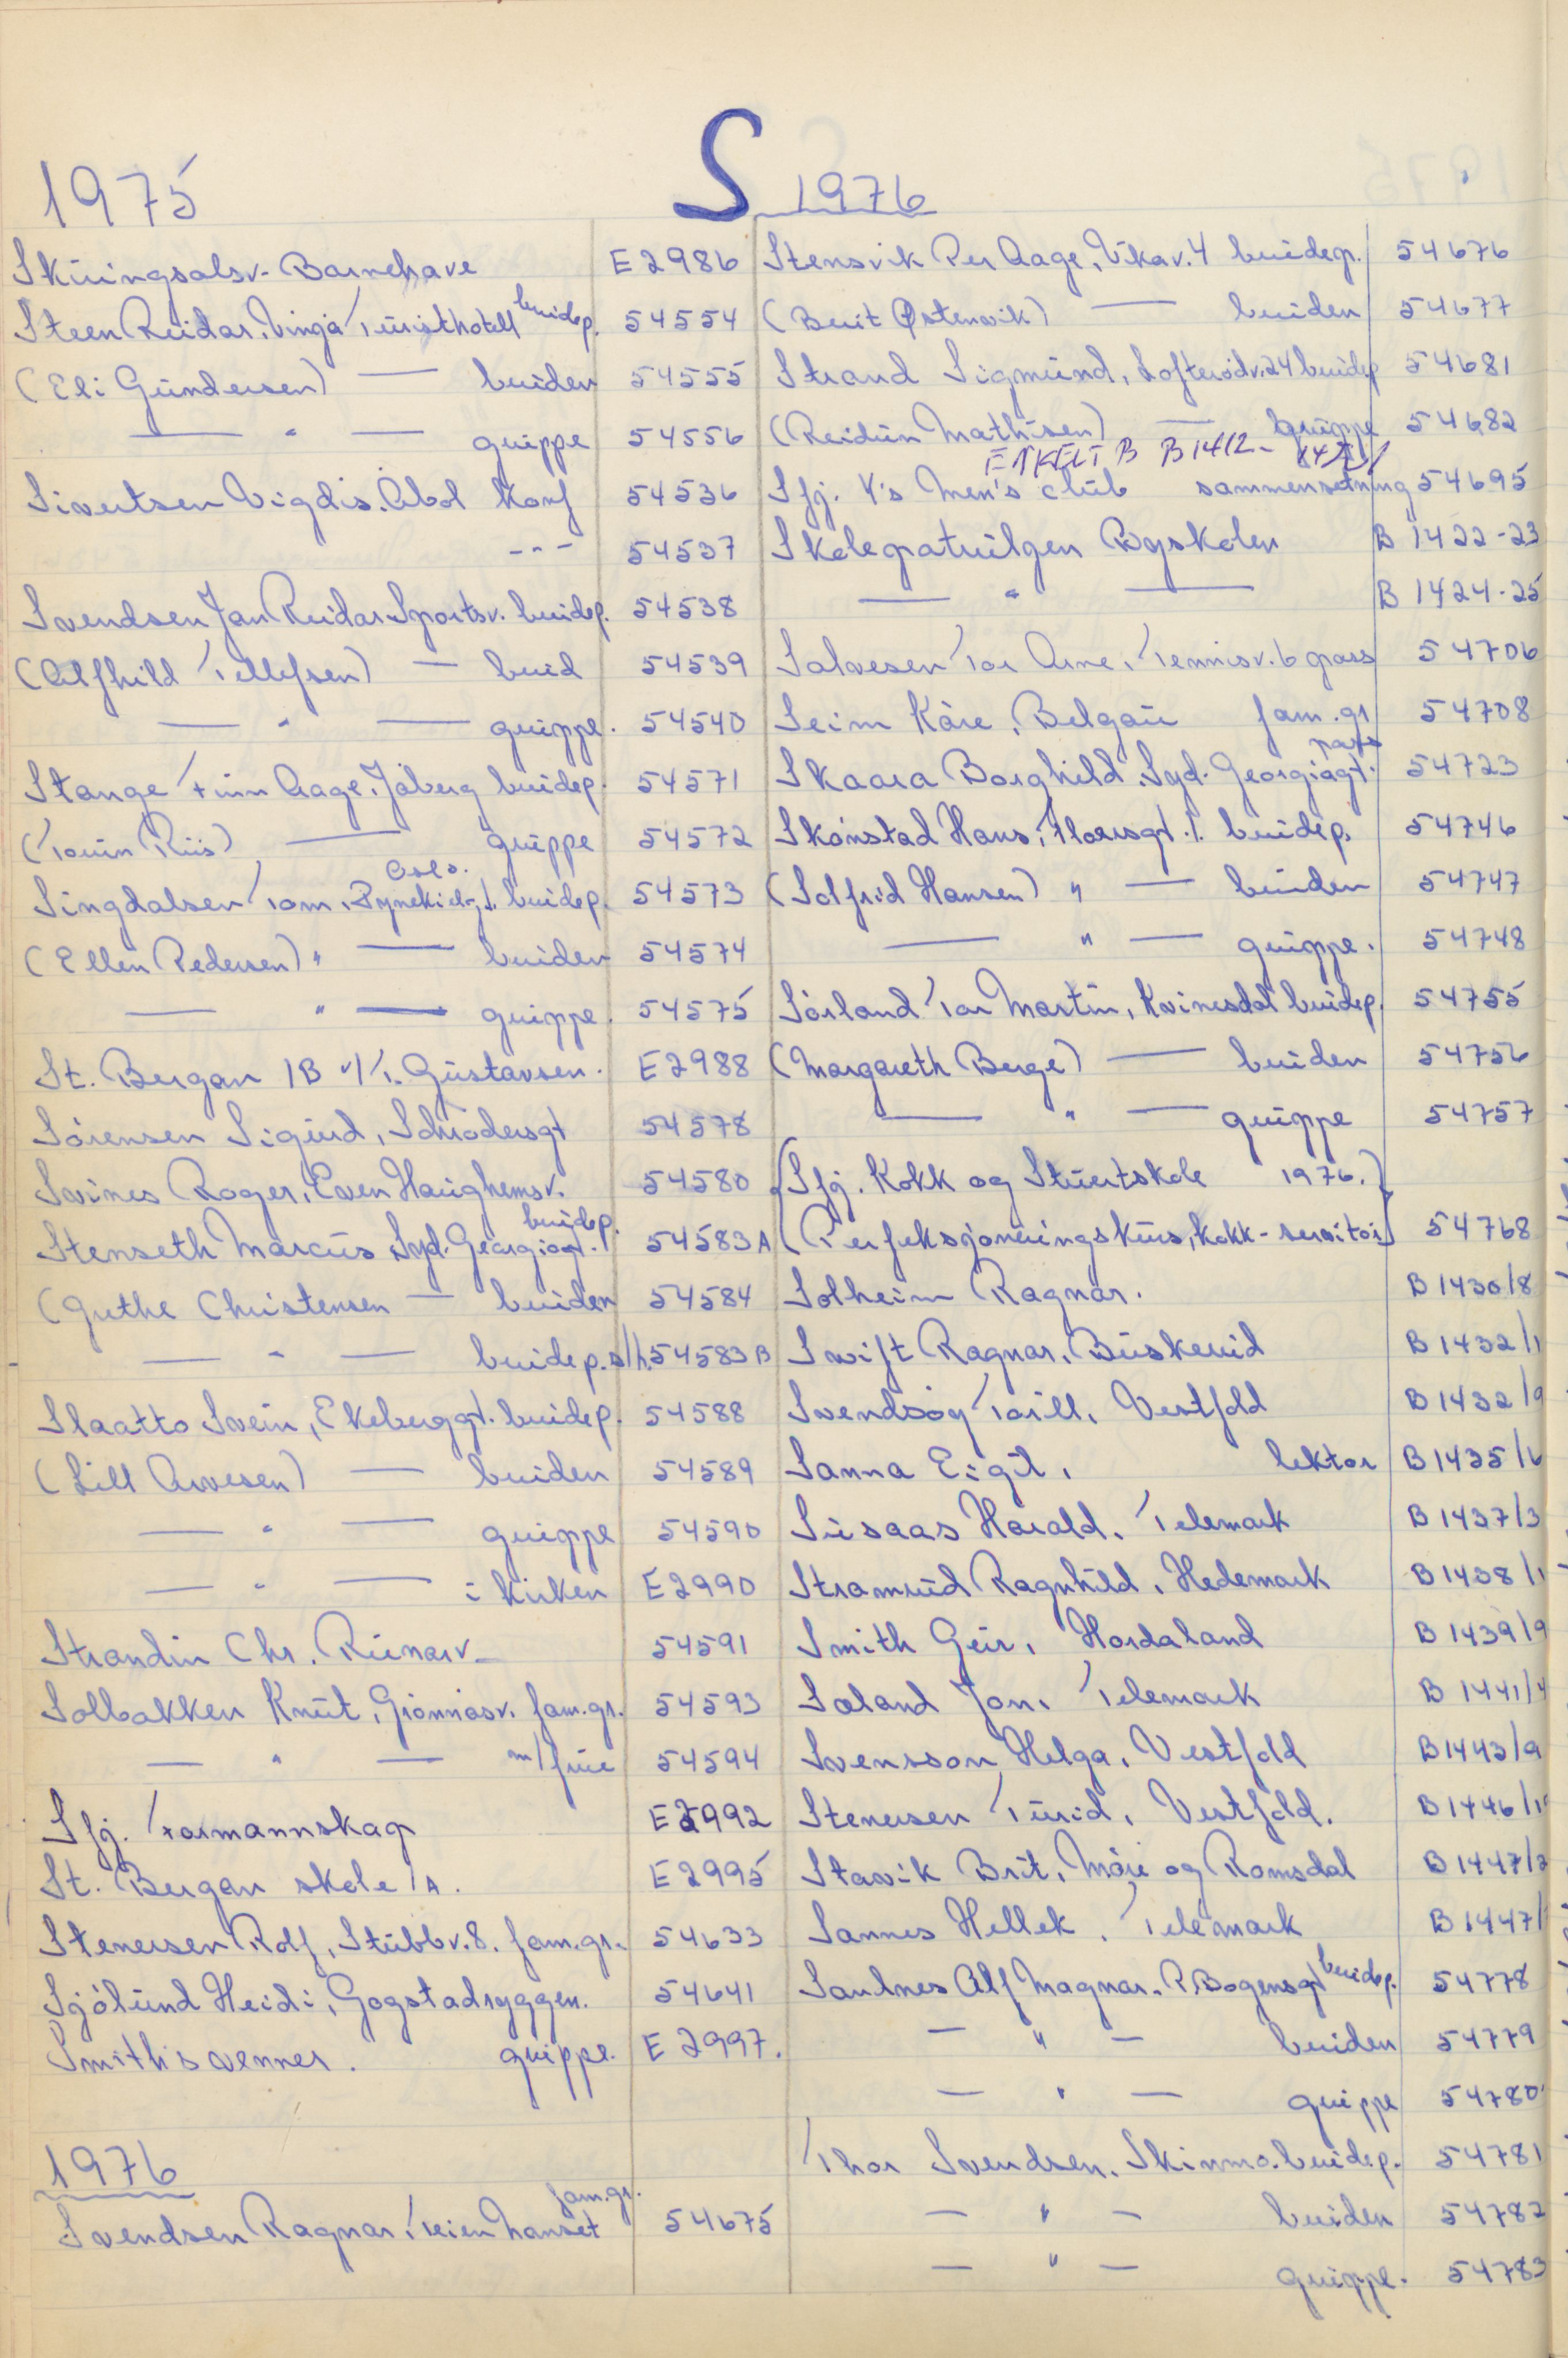 S
1975
Skiringsalsv. Barnehave E 2986
Steen Reidar, Vingå Turisthotell brudep. 54554
(Eli Gundersen) — bruden 54555
— " — gruppe 54556
Sivertsen Vigdis. Åbol Konf 54536
--- 54537
Svendsen Jan Reidar Sportsv. brudep. 54538
(Alfhild Tellefsen) — brud 54539
— " — gruppe. 54540
Stange Finn Aage, Jåberg brudep. 54571
(Torun Riis) — gruppe 54572
Singdalsen Tom, Oslo. brudep. 54573
(Ellen Pedersen) " — bruden 54574
— " — gruppe. 54575
St. Bergan 1B v/T. Gustavsen. E 2988
Sørensen Sigurd, Schrødersgt 54578
Svines Roger, Even Haughemsv. 54580
Stenseth Marcus Syd. Georgiagt. brudep. 54583 A
(Grethe Christensen — bruden 54584
— " — brudep. s/h. 54583 B
Slaatto Svein, Ekeberggt. brudep. 54588
(Lill Arvesen) — bruden 54589
— " — gruppe 54590
— " — i kirken E 2990
Strandin Chr. Runarv. 54591
Solbakken Knut, Grønnåsv. fam.gr. 54593
— " — m/frue 54594
Sfj. Formannskap E 2992
St. Bergan skole 1A. E 2995
Stenersen Rolf, Stubbv. 8. fam.gr. 54633
Sjølund Heidi, Gogstadryggen. 54641
Smiths venner. gruppe. E 2997.
1976
Svendsen Ragnar, Veien fam.gr. 54675
1976
Stensvik Per Aage, Vikav. 4 brudep. 54676
(Berit Østensvik) — bruden 54677
Strand Sigmund, Lofterødv. 24 brudep 54681
(Reidun Mathisen) — gruppe 54682
ENKELT B B 1412 -
Sfj. Y's Men's club sammensetning 54695
Skolepatruljen Byskolen B 1422-23
— " — B 1424-25
Salvesen Tor Arne, Tennisv. 6 pass 54706
Seim Kåre, Belgau fam.gr 54708
Skaara Borghild. Syd. Georgiagt. pass 54723
Skonstad Hans, Floersgt. 1. brudep. 54746
(Solfrid Hansen) " — bruden 54747
— " — gruppe. 54748
Sørland Tor Martin, Kvinesdal brudep. 54755
(Margareth Berge) — bruden 54756
— " — gruppe 54757
(Sfj. Kokk og Stuertskole 1976.)
(Perfeksjoneringskurs, kokk-servitør) 54768
Solheim Ragnar. B 1430/8
Swift Ragnar, Buskerud B 1432/1
Svendsøy Torill, Vestfold B 1432/9
Sanna Eigil, lektor B 1435/6
Susaas Harald, Telemark B 1437/3
Stramrud Ragnhild, Hedemark B 1438/1
Smith Geir, Hordaland B 1439/9
Sæland Jon, Telemark B 1441/4
Svensson Helga, Vestfold B 1443/9
Stenersen Turid, Vestfold. B 1446/1
Stavik Brit, Møre og Romsdal B 1447/2
Sannes Hellek, Telemark B 1447/
Saulnes Alf Magnar. P. Bogensgt brudep. 54778
— " — bruden 54779
— " — gruppe 54780
Thor Svendsen, Skinmo. brudep. 54781
— " — bruden 54782
— " — gruppe. 54783